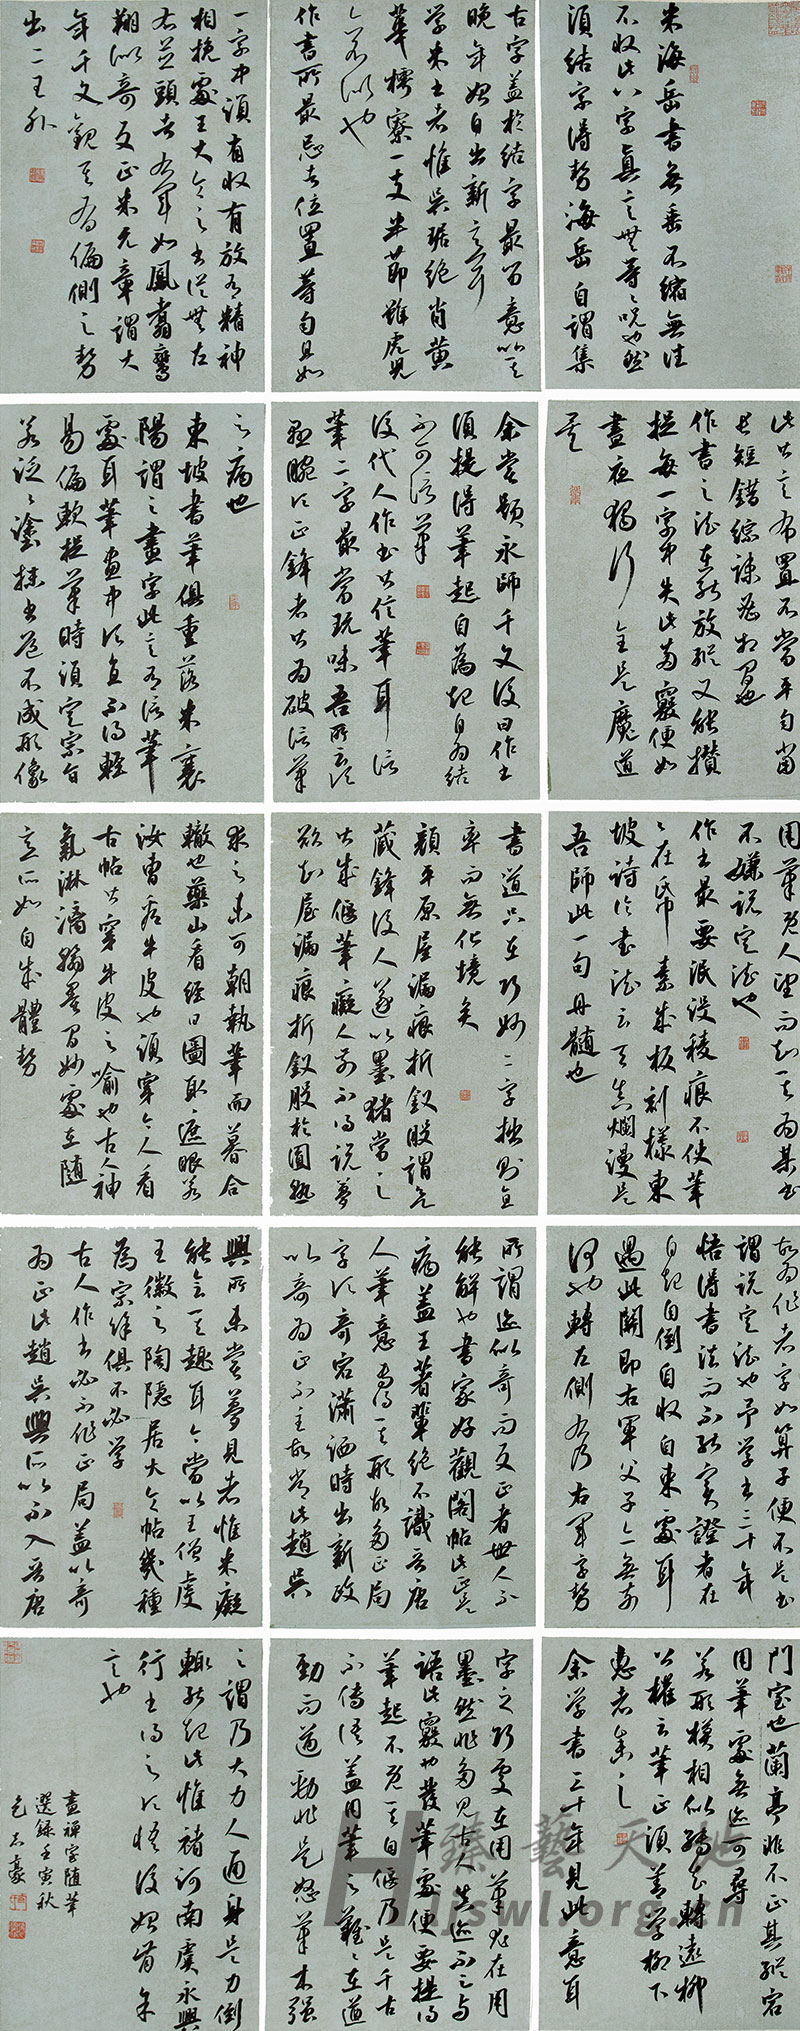 米海岳書無垂不縮無往
不收此八字真言無等等咒也然
須結字得勢海岳自謂集
古字蓋於結字最留意以其
晚年始自出新意耳
學米書者惟吳琚絕肖黃
華樗寮一支半節雖虎兒
亦不似也
作書所最忌者位置等勻且如
一字中須有收有放有精神
相挽處王大令之書從無左
右並頭者右軍如鳳翥鸞
翔似奇反正米元章謂大
年千文觀其有偏側之勢
出二王外
此皆言布置不當平勻當
長短錯綜疎密相間也
作書之法在能放縱又能攢
捉每一字中失此兩竅便如
晝夜獨行全是魔道
矣
余嘗題永師千文後曰作書
須提得筆起自為起自為結
不可信筆
後代人作書皆信筆耳信
筆二字最當玩味吾所云須
懸腕須正鋒者皆為破信筆
之病也
東坡書筆俱重落米襄
陽謂之畫字此言有信筆
處耳筆畫中須直不得輕
易偏軟捉筆時須定宗旨
若泛泛塗抹書道不成形像
用筆使人望而知其為某書
不嫌說定法也
作書最要泯沒稜痕不使筆
筆在紙素成板刻樣東
坡詩論書法云天真爛漫是
吾師此一句丹髓也
書道只在巧妙二字拙則直
率而無化境矣
顏平原屋漏痕折釵股謂欲
藏鋒後人遂以墨豬當之
皆成偃筆癡人前不得說夢
欲知屋漏痕折釵股於圓熟
求之未可朝執筆而暮合
轍也藥山看經曰圖取遮眼若
汝曹看牛皮也須穿今人看
古帖皆穿牛皮之喻也古人神
氣淋漓翰墨間妙處在隨
意所如自成體勢
故為作者字如算子便不是書
謂說定法也予學書三十年
悟得書法而不能實證者在
自起自倒自收自束處耳
過此關即右軍父子亦無奈
何也轉左側右乃右軍字勢
所謂迹似奇而反正者世人不
能解也書家好觀閣帖此正是
病蓋王著輩絕不識晉唐
人筆意專得其形故多正局
字須奇宕瀟洒時出新致
以奇為正不主故常此趙吳
興所未嘗夢見者惟米癡
能會其趣耳今當以王僧虔
王徽之陶隱居大令帖幾種
為宗餘俱不必學
古人作書必不作正局蓋以奇
為正此趙吳興所以不入晉唐
門室也蘭亭非不正其縱宕
用筆處無迹可尋
若形模相似轉去轉遠柳
公權云筆正須善學柳下
惠者參之
余學書三十年見此意耳
字之巧處在用筆尤在用
墨然非多見古人真迹不足與
語此竅也發筆處便要提得
筆起不使其自偃乃是千古
不傳語蓋用筆之難難在遒
勁而遒勁非是怒筆木強
之謂乃大力人通身是力倒
輒能起此惟褚河南虞永興
行書得之須悟後始肯余
言也
畫禪室隨筆
選錄壬寅秋
包志豪